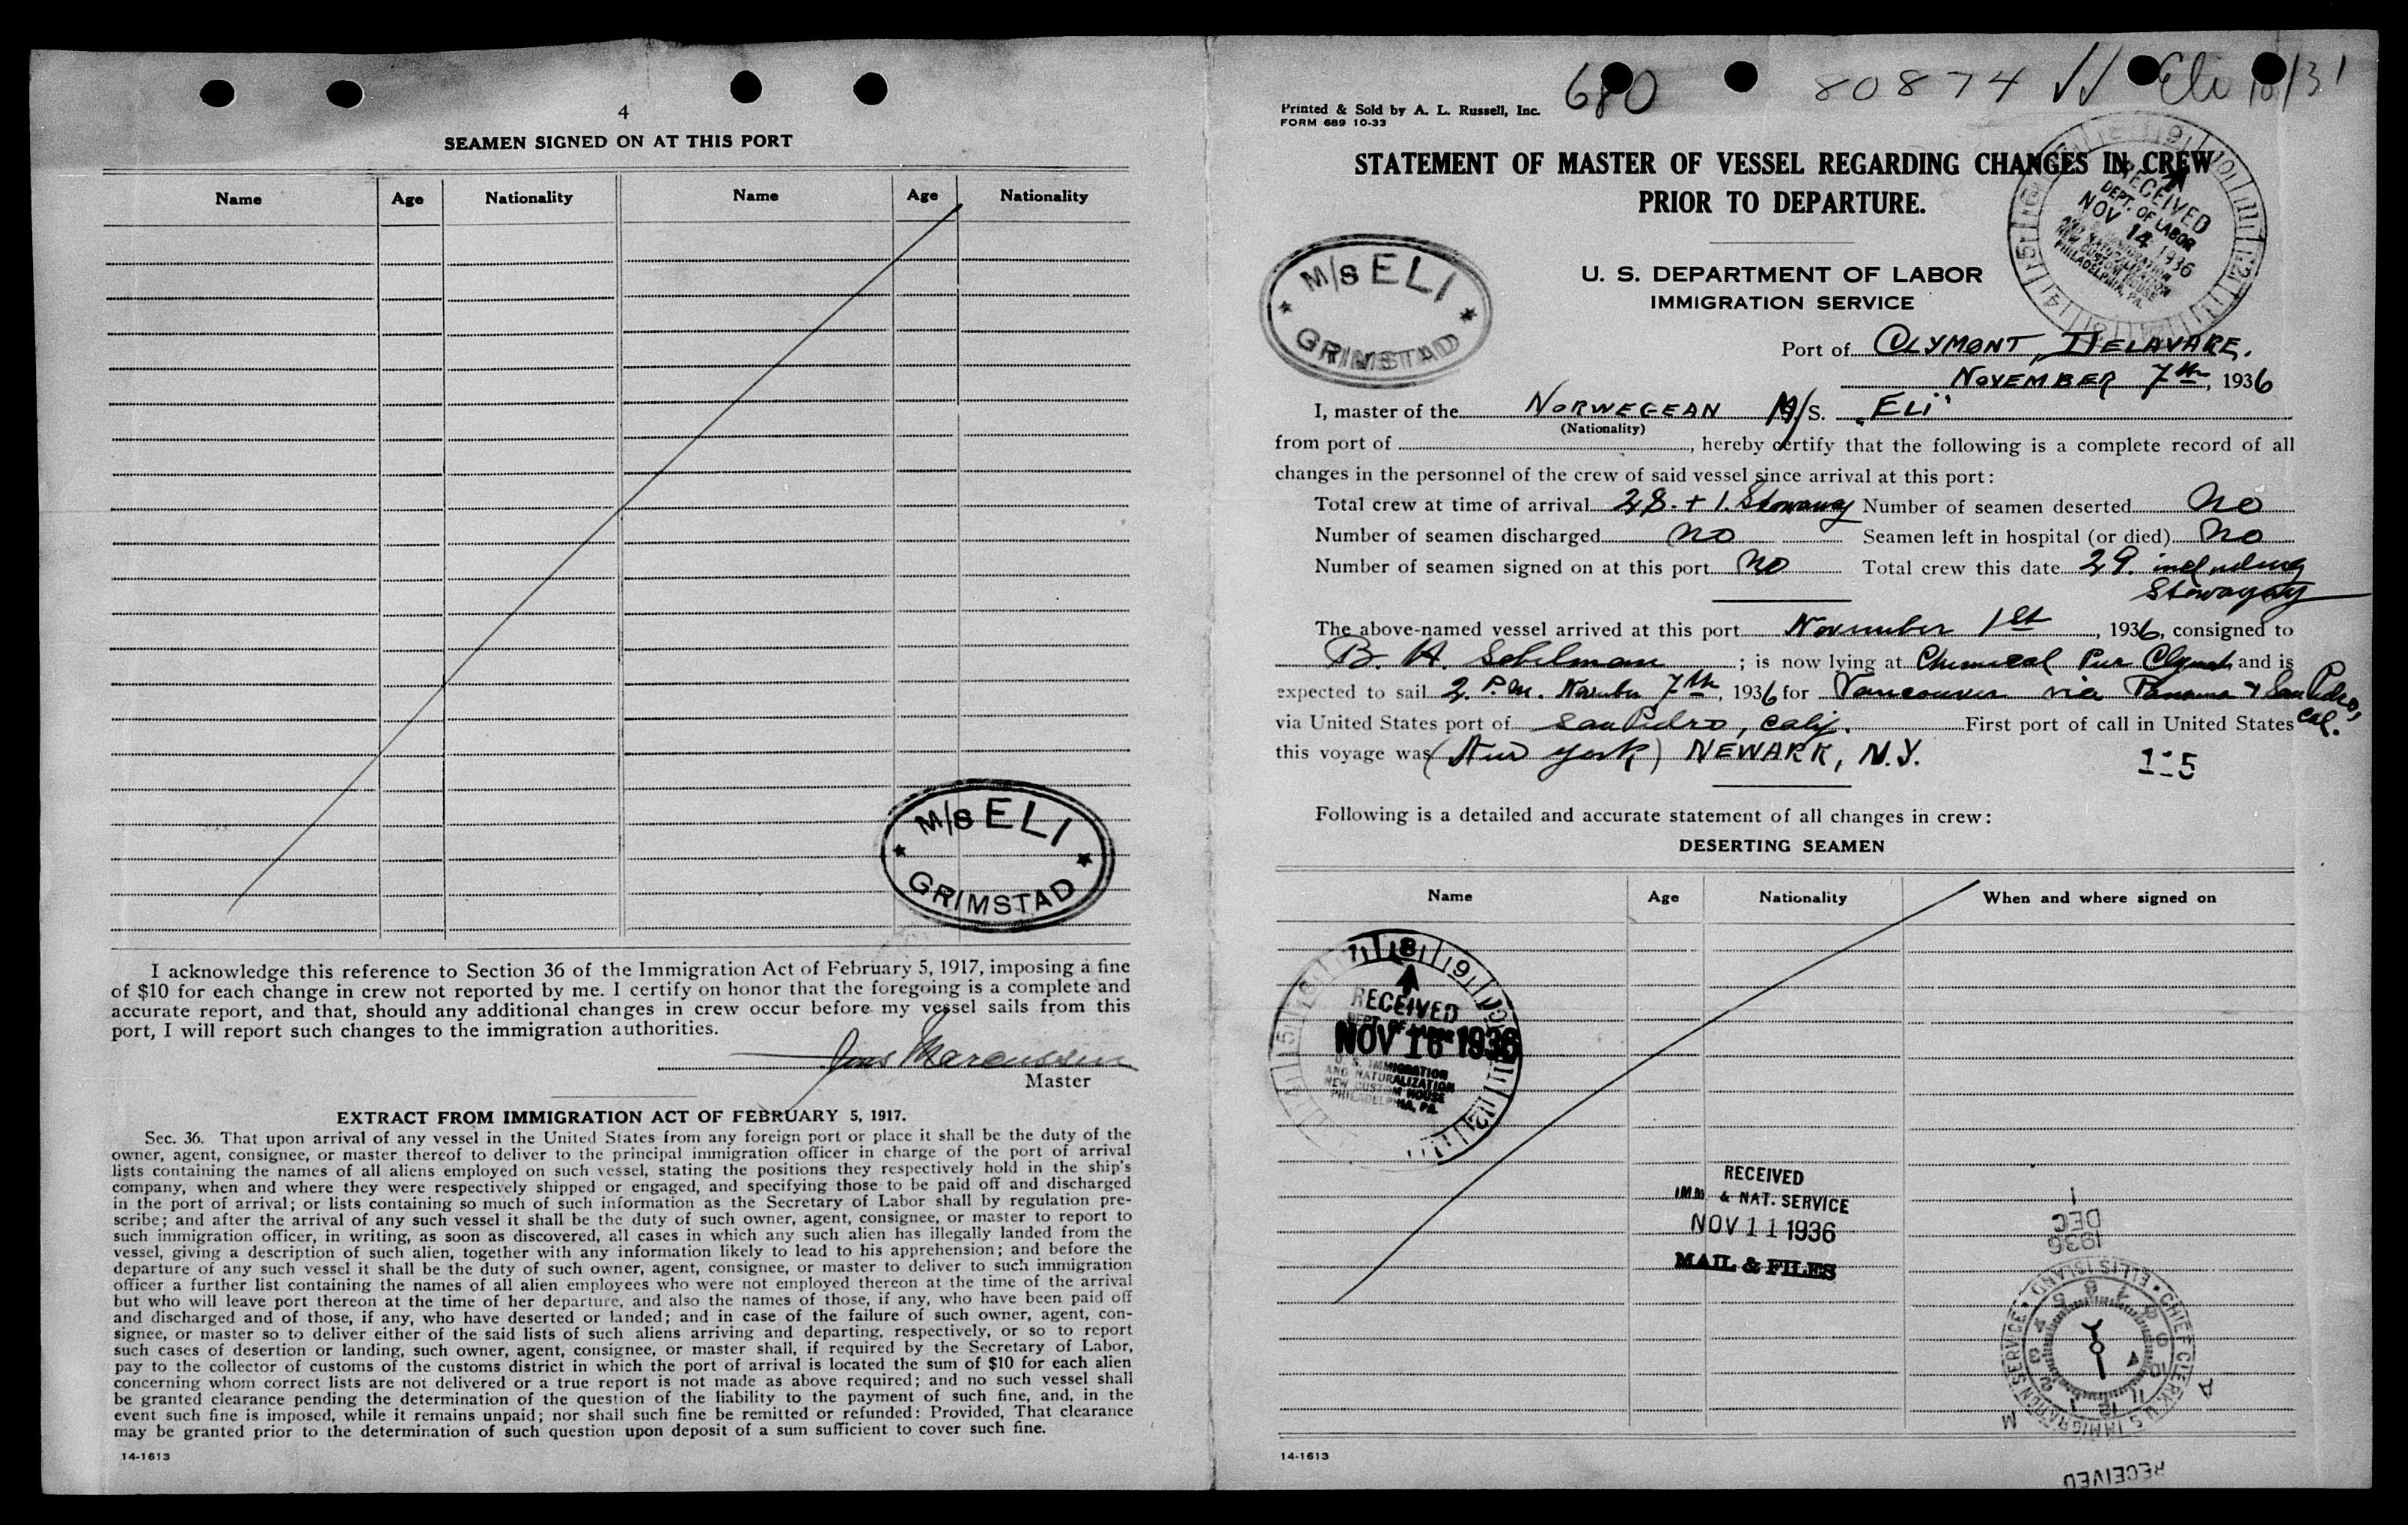 4
SEAMEN SIGNED ON AT THIS PORT
Name Age Nationality Name Age Nationality
M/S ELI
GRIMSTAD
I acknowledge this reference to Section 36 of the Immigration Act of February 5, 1917, imposing a fine
of $10 for each change in crew not reported by me. I certify on honor that the foregoing is a complete and
accurate report, and that, should any additional changes in crew occur before my vessel sails from this
port, I will report such changes to the immigration authorities.
Marcussen
Master
EXTRACT FROM IMMIGRATION ACT OF FEBRUARY 5, 1917.
Sec. 36. That upon arrival of any vessel in the United States from any foreign port or place it shall be the duty of the
owner, agent, consignee, or master thereof to deliver to the principal immigration officer in charge of the port of arrival
lists containing the names of all aliens employed on such vessel, stating the positions they respectively hold in the ship's
company, when and where they were respectively shipped or engaged, and specifying those to be paid off and discharged
in the port of arrival; or lists containing so much of such information as the Secretary of Labor shall by regulation pre-
scribe; and after the arrival of any such vessel it shall be the duty of such owner, agent, consignee, or master to report to
such immigration officer, in writing, as soon as discovered, all cases in which any such alien has illegally landed from the
vessel, giving a description of such alien, together with any information likely to lead to his apprehension; and before the
departure of any such vessel it shall be the duty of such owner, agent, consignee, or master to deliver to such immigration
officer a further list containing the names of all alien employees who were not employed thereon at the time of the arrival
but who will leave port thereon at the time of her departure, and also the names of those, if any, who have been paid off
and discharged and of those, if any, who have deserted or landed; and in case of the failure of such owner, agent, con-
signee, or master so to deliver either of the said lists of such aliens arriving and departing, respectively, or so to report
such cases of desertion or landing, such owner, agent, consignee, or master shall, if required by the Secretary of Labor,
pay to the collector of customs of the customs district in which the port of arrival is located the sum of $10 for each alien
concerning whom correct lists are not delivered or a true report is not made as above required; and no such vessel shall
be granted clearance pending the determination of the question of the liability to the payment of such fine, and, in the
event such fine is imposed, while it remains unpaid; nor shall such fine be remitted or refunded: Provided, That clearance
may be granted prior to the determination of such question upon deposit of a sum sufficient to cover such fine.
14-1613
680 80874 Eli 10/31
Printed & Sold by A. L. Russell, Inc.
FORM 689 10-33
STATEMENT OF MASTER OF VESSEL REGARDING CHANGES IN CREW
PRIOR TO DEPARTURE.
RECEIVED
DEPT. OF LABOR
NOV 14 1936
IMMIGRATION
AND NATURALIZATION
NEW CUSTOM HOUSE
PHILADELPHIA, PA.
M/S ELI
GRIMSTAD
U. S. DEPARTMENT OF LABOR
IMMIGRATION SERVICE
Port of CLYMONT, DELAVARE.
NOVEMBER 7th, 1936
I, master of the NORWEGEAN M/S. „ELI"
(Nationality)
from port of , hereby certify that the following is a complete record of all
changes in the personnel of the crew of said vessel since arrival at this port:
Total crew at time of arrival 28. + 1. Stowaway Number of seamen deserted no
Number of seamen discharged no Seamen left in hospital (or died) no
Number of seamen signed on at this port no Total crew this date 29. including
Stowayay
The above-named vessel arrived at this port November 1st, 1936, consigned to
B. H. Sobelman; is now lying at Chemical Pier Clymont and is
expected to sail 2. P.M. November 7th, 1936 for Vancouver via Panama & San Pedro,
Cal.
via United States port of San Pedro, Calif. First port of call in United States
this voyage was (New York) NEWARK, N.Y.
1-5
Following is a detailed and accurate statement of all changes in crew:
DESERTING SEAMEN
Name Age Nationality When and where signed on
RECEIVED
DEPT. OF LABOR
NOV 16 1936
U. S. IMMIGRATION
AND NATURALIZATION
NEW CUSTOM HOUSE
PHILADELPHIA, PA.
RECEIVED
IMM & NAT. SERVICE
NOV 11 1936
MAIL & FILES
1
DEC
1936
CHIEF CLERK U S IMMIGRATION SERVICE • ELLIS ISLAND
RECEIVED
14-1613